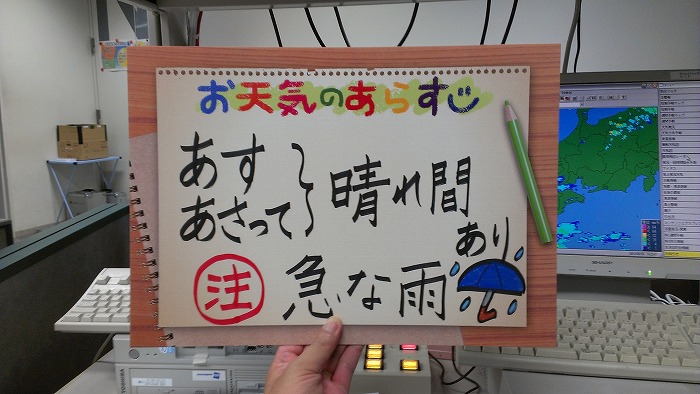 お天気のあらすじ
あす
あさって
晴れ間
あり
注 急な雨
TOSHIBA